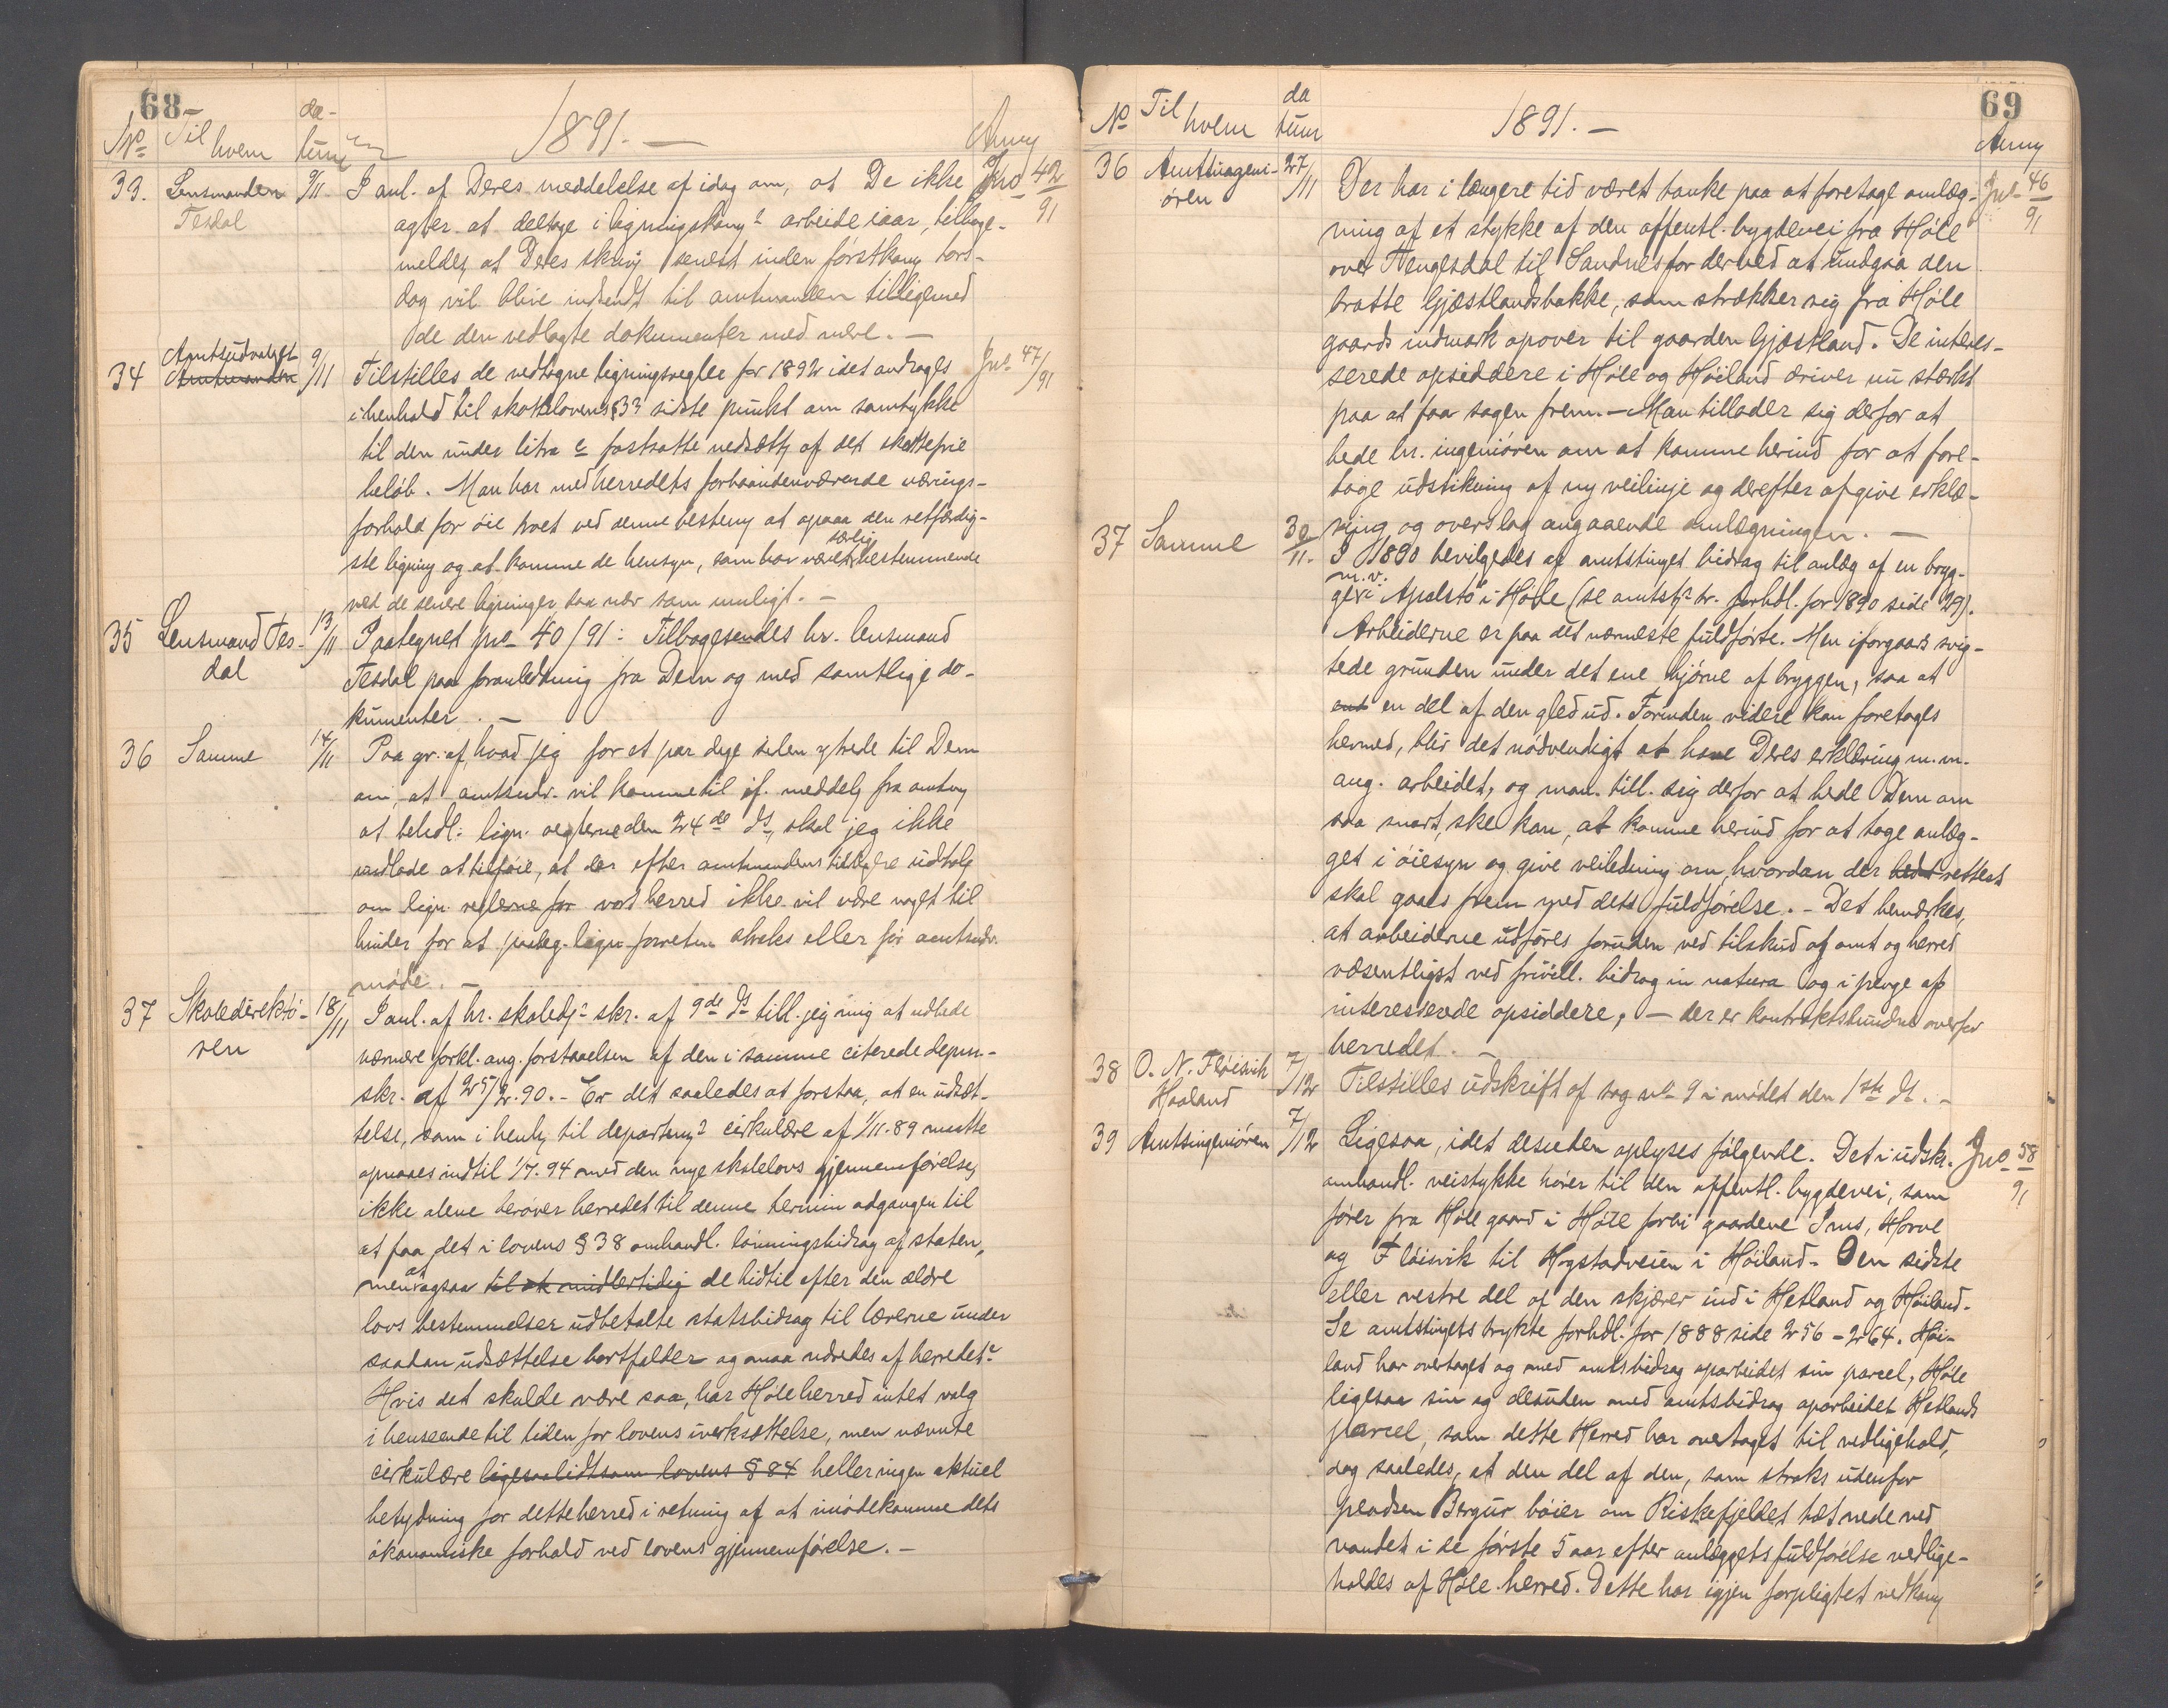 68
No Til hvem datum 1891. — Anm
33. Lensmanden Tesdal 9/11 I anl. af Deres meddelelse af idag om, at De ikke Jno 42/91
agter at deltage i ligningskom? arbeide iaar, tilbage-
meldes at Deres skriv senest inden förstkom tors-
dag vil blive indsendt til amtmanden tilligemed
de den vedlagte dokumenter med mere. —
34 Amtsudvalget Amtmanden 9/11 Tilstilles de vedtagne ligningsregler for 1892 idet andrages Jno 47/91
i henhold til skattelovens § 3? sidste punkt om samtykke
til den under litra c fastsatte nedsætt af det skattefrie
belöb. Man har med herredets forhaandenværende nærings-
forhold for öie troet ved denne bestem at opnaa den retfærdig-
ste ligning og at komme de hensyn, som har været særlig bestemmende
ved de senere ligninger saa nær som muligt. —
35 Lensmand Tesdal 13/11 Paategnet jno 40/91: Tilbagesendes hr. lensmand
Tesdal paa foranledning fra Dem og med samtlige do-
kumenter. —
36 Samme 14/11 Paa gr. af hvad jeg for et par dage siden ytrede til Dem
om, at amtsudv. vil komme til if. meddel fra amtm
at behdl. lign. reglerne den 24de ds, skal jeg ikke
undlade at tilföie, at der efter amtmandens tidligere udtal
om lign. reglerne for vort herred ikke vil være noget til
hinder for at lign forreten straks eller för amtsudv.
möde. —
37 Skoledirektören 18/11 I anl. af hr. skoledj? skr. af 9de ds till. jeg mig at udbede
nærmere forkl. ang. forstaaelsen af den i samme citerede depm-
skr. af 25/2.90. — Er det saaledes at forstaa, at en udsæt-
telse, som i henh til departem? cirkulære af 1/11.89 maatte
opnaaes indtil 1/7.94 med den nye skolelovs gjennemförelse,
ikke alene beröver herredet til denne termin adgangen til
at faa det i lovens § 38 omhandl. lönningsbidrag af staten,
men at ogsaa til at midlertidig de hidtil efter den ældre
lovs bestemmelser udbetalte statsbidrag til lærerne under
saadan udsættelse bortfalder og maa udredes af herredet?
Hvis det skulde være saa, har Höle herred intet valg
i henseende til tiden for lovens iverksættelse, men nævnte
cirkulære ligesaalidt som lovens § 84 heller ingen aktuel
betydning for dette herred i retning af at imödekomme dets
ökonomiske forhold ved lovens gjennemförelse. —
69
No Til hvem datum 1891. — Anm
36 Amtsingeniören 27/11 Der har i længere tid været tanke paa at foretage omlæg- Jno 46/91
ning af et stykke af den offentl. bygdevei fra Höle
over Tengesdal til Sandnes for derved at undgaa den
bratte Gjæstlandsbakke, som strækker sig fra Höle
gaards indmark opover til gaarden Gjæstland. De interes-
serede opsiddere i Höle og Höiland driver nu stærkt
paa at faa sagen frem. — Man tillader sig derfor at
bede hr. ingeniören om at komme herind for at fore-
tage udstikning af ny veilinje og derefter afgive erklæ-
ring og overslag angaaende omlægningen. —
37 Samme 30/11. I 1890 bevilgedes af amtstinget bidrag til anlæg af en bryg-
ge m. v. i Apalstö i Höle (se amtst? tr. forhdl. for 1890 side 29).
Arbeiderne er paa det nærmeste fuldförte. Men iforgaars svig-
tede grunden under det ene hjörne af bryggen, saa at
en del af den gled ud. Forinden videre kan foretages
hermed, blir det nödvendigt at have Deres erklæring m. m.
ang. arbeidet, og man till. sig derfor at bede Dem om
saa snart, ske kan, at komme herind for at tage anlæg-
get i öiesyn og give veiledning om, hvordan der bedst rettest
skal gaaes frem med dets fuldförelse. — Det bemærkes,
at arbeiderne udföres foruden ved tilskud af amt og herred
væsentligst ved frivill. bidrag in natura og i penge af
interesserede opsiddere, — der er kontraktsbundne overfor
herredet. —
38 O. N. Flöisvik Haaland 7/12 Tilstilles udskrift af sag no 9 i mödet den 1ste ds. —
39 Amtsingeniören 7/12 Ligesaa, idet desuden oplyses fölgende. Det i udskr. Jno 58/91
omhandl. veistykke hörer til den offentl. bygdevei, som
förer fra Höle gaard i Höle forbi gaardene Ims, Horve
og Flöisvik til Hogstadveien i Höiland. Den sidste
eller vestre del af den skjærer ind i Hetland og Höiland.
Se amtstingets trykte forhdl. for 1888 side 256 – 264. Höi-
land har overtaget og med amtsbidrag oparbeidet sin parcel, Höle
ligesaa sin og desuden med amtsbidrag oparbeidet Hetlands
parcel, som dette Herred har overtaget til vedligehold,
dog saaledes, at den del af den, som straks udenfor
pladsen Bergur böier om Riskefjeldet tæt nede ved
vandet i de förste 5 aar efter anlæggets fuldförelse vedlige-
holdes af Höle herred. Dette har igjen forpligtet vedkom